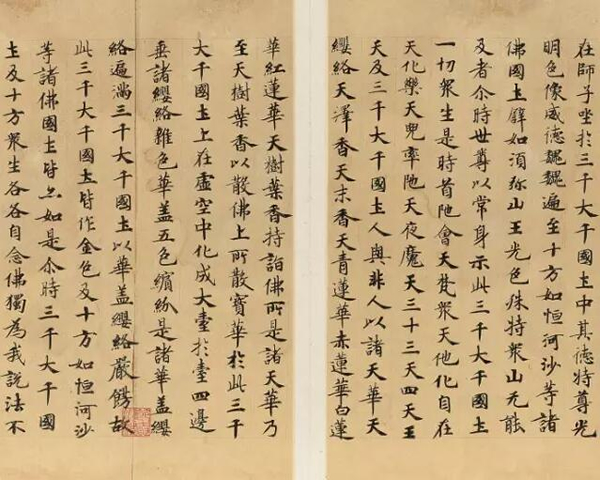 在師子坐於三千大千國土中其德特尊光
明色像威德巍巍遍至十方如恒河沙等諸
佛國土譬如須弥山王光色殊特眾山无能
及者尒時世尊以常身示此三千大千國土
一切眾生是時首陁會天梵眾天他化自在
天化樂天兜率陁天夜魔天三十三天四天王
天及三千大千國土人與非人以諸天華天
纓絡天澤香天末香天青蓮華赤蓮華白蓮
華紅蓮華天樹葉香持詣佛所是諸天華乃
至天樹葉香以散佛上所散寶華於此三千
大千國土上在虛空中化成大臺於臺四邊
垂諸纓絡雜色華蓋五色繽紛是諸華蓋纓
絡遍滿三千大千國土以華盖纓絡嚴餝故
此三千大千國土皆作金色及十方如恒河沙
等諸佛國土皆亦如是尒時三千大千國
土及十方眾生各各自念佛獨為我說法不